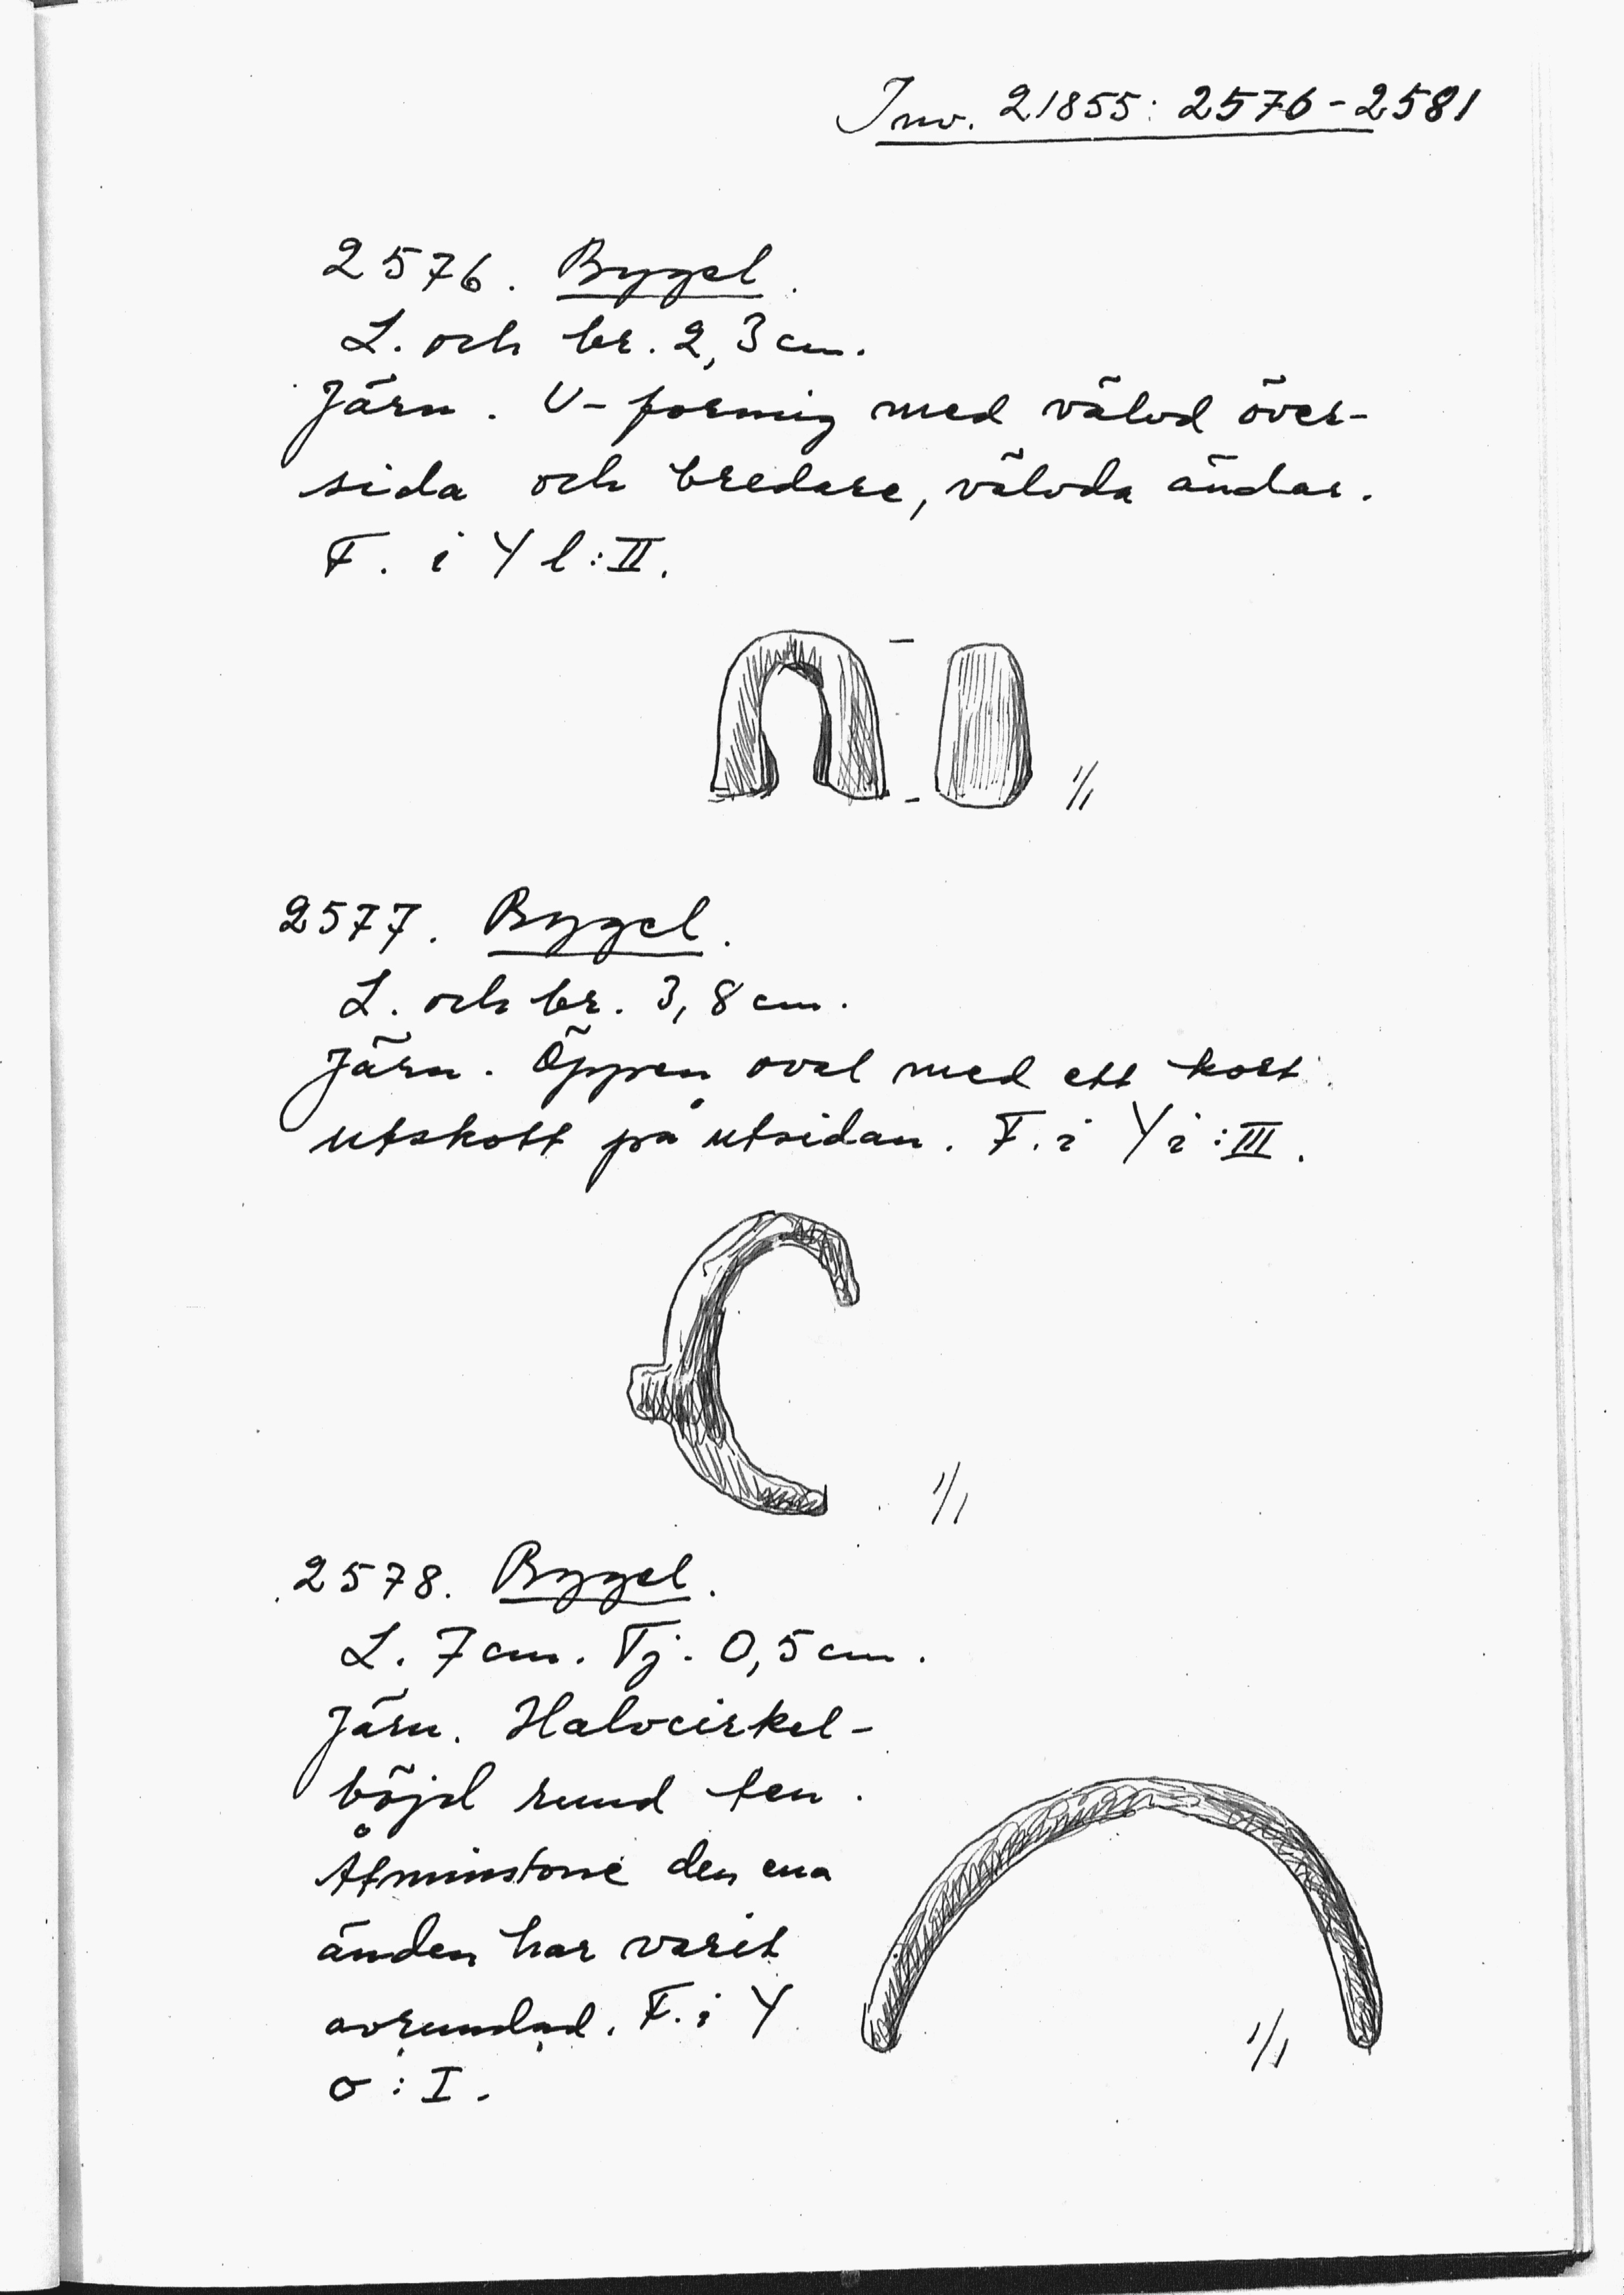 Inv. 21855: 2576-2581
2576. Bygel.
L. och br. 2,3 cm.
Järn. U-formig med välvd över-
sida och bredare, välvda ändar.
F. i Y l:II.
1/1
2577. Bygel.
L. och br. 3,8 cm.
Järn. Öppen oval med ett kort
utskott på utsidan. F. i Y i:III.
1/1
2578. Bygel.
L. 7 cm. Tj. 0,5 cm.
Järn. Halvcirkel-
böjd rund ten.
Åtminstone den ena
änden har varit
avrundad. F. i Y
o:I.
1/1